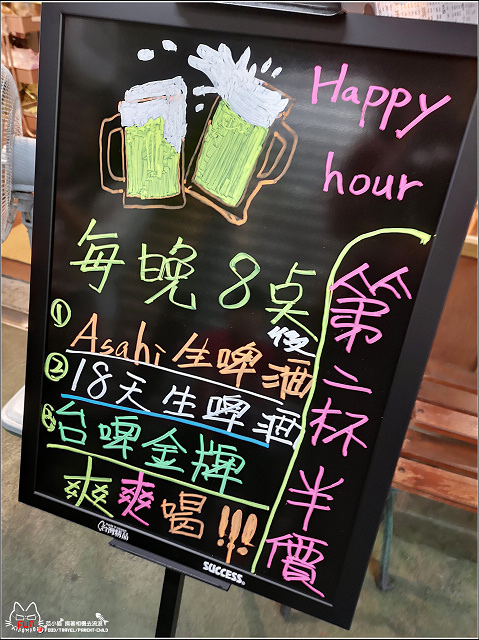 Happy
hour
每晚8点
後
① Asahi生啤酒
② 18天生啤酒
③ 台啤金牌
爽爽喝!!!
第二杯半價
SUCCESS